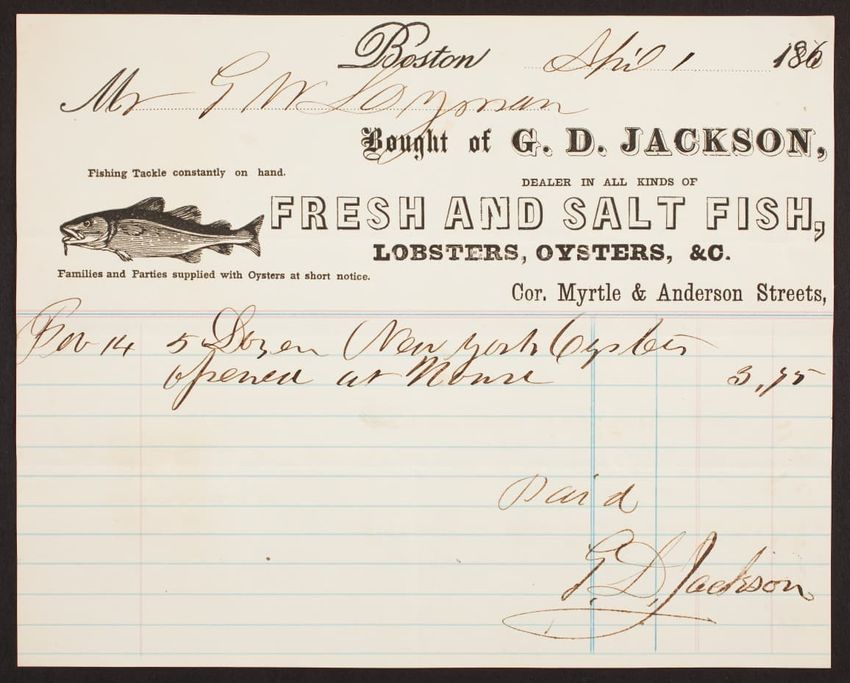 Boston April 1 186
Mr G W Loyman
Bought of G. D. JACKSON,
Fishing Tackle constantly on hand.
DEALER IN ALL KINDS OF
FRESH AND SALT FISH,
LOBSTERS, OYSTERS, &C.
Families and Parties supplied with Oysters at short notice.
Cor. Myrtle & Anderson Streets,
14 5 Dozen New york Oysters
opened at House 3,75
Paid
G. D. Jackson